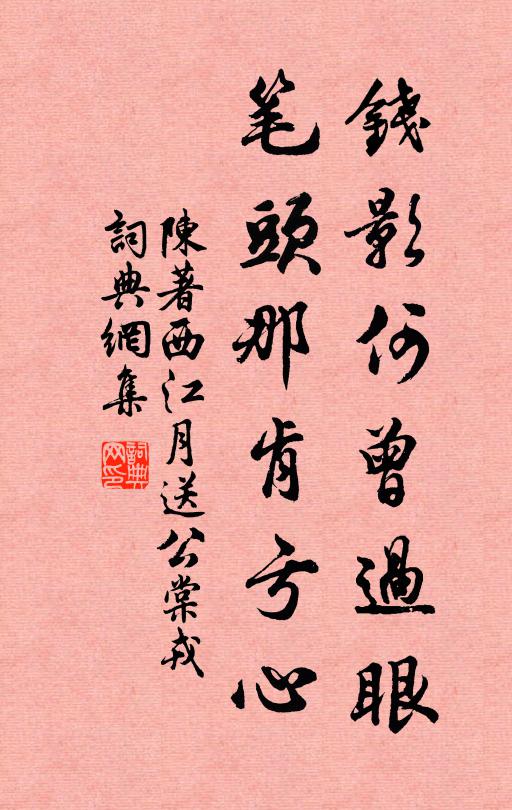 錢影何曾過眼
笔頭那肯亏心
陳著西江月送公棠戎
詞典網集
詞典网印